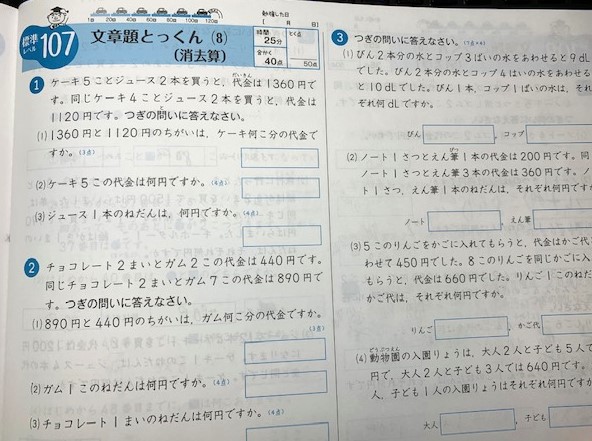 標準
レベル
107
文章題とっくん(8)
(消去算)
1台 20台 40台 60台 80台 100台 120台
勉強した日
〔 月 日〕
時間
25分
とく点
合かく
40点
50点
1 ケーキ5ことジュース2本を買うと、代金は1360円で
す。同じケーキ4ことジュース2本を買うと、代金は
1120円です。つぎの問いに答えなさい。
(1)1360円と1120円のちがいは、ケーキ何こ分の代金で
すか。(3点)
(2)ケーキ5この代金は何円ですか。(4点)
(3)ジュース1本のねだんは、何円ですか。(4点)
2 チョコレート2まいとガム2この代金は440円です。
同じチョコレート2まいとガム7この代金は890円で
す。つぎの問いに答えなさい。
(1)890円と440円のちがいは、ガム何こ分の代金ですか。
(3点)
(2)ガム1このねだんは何円ですか。(4点)
(3)チョコレート1まいのねだんは何円ですか。(4点)
3 つぎの問いに答えなさい。(7点×4)
(1)びん2本分の水とコップ3ばいの水をあわせると9dL
でした。びん2本分の水とコップ4はいの水をあわせる
と10dLでした。びん1本、コップ1ぱいの水は、それ
ぞれ何dLですか。
びん , コップ
(2)ノート1さつとえん筆1本の代金は200円です。同
ノート1さつとえん筆3本の代金は360円です。ノ
ト1さつ、えん筆1本のねだんは、それぞれ何円ですか
ノート , えん筆
(3)5このりんごをかごに入れてもらうと、代金はかご代
わせて450円でした。8このりんごを同じかごに入
もらうと、代金は660円でした。りんご1このねだ
かご代は、それぞれ何円ですか。
りんご , かご代
(4)動物園の入園りょうは、大人2人と子ども5人で
円で、大人2人と子ども3人では640円です。
人、子ども1人の入園りょうはそれぞれ何円ですか
大人 , 子ども